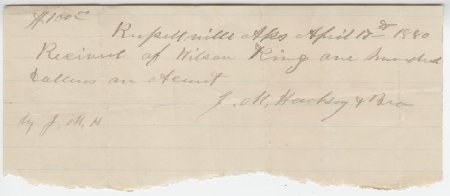 $100.00
Russellville Aks April 12th 1880
Recivut of Wilson King one hundred
Dallers on acount
J. M. Harkey & Bro
by J. M. H